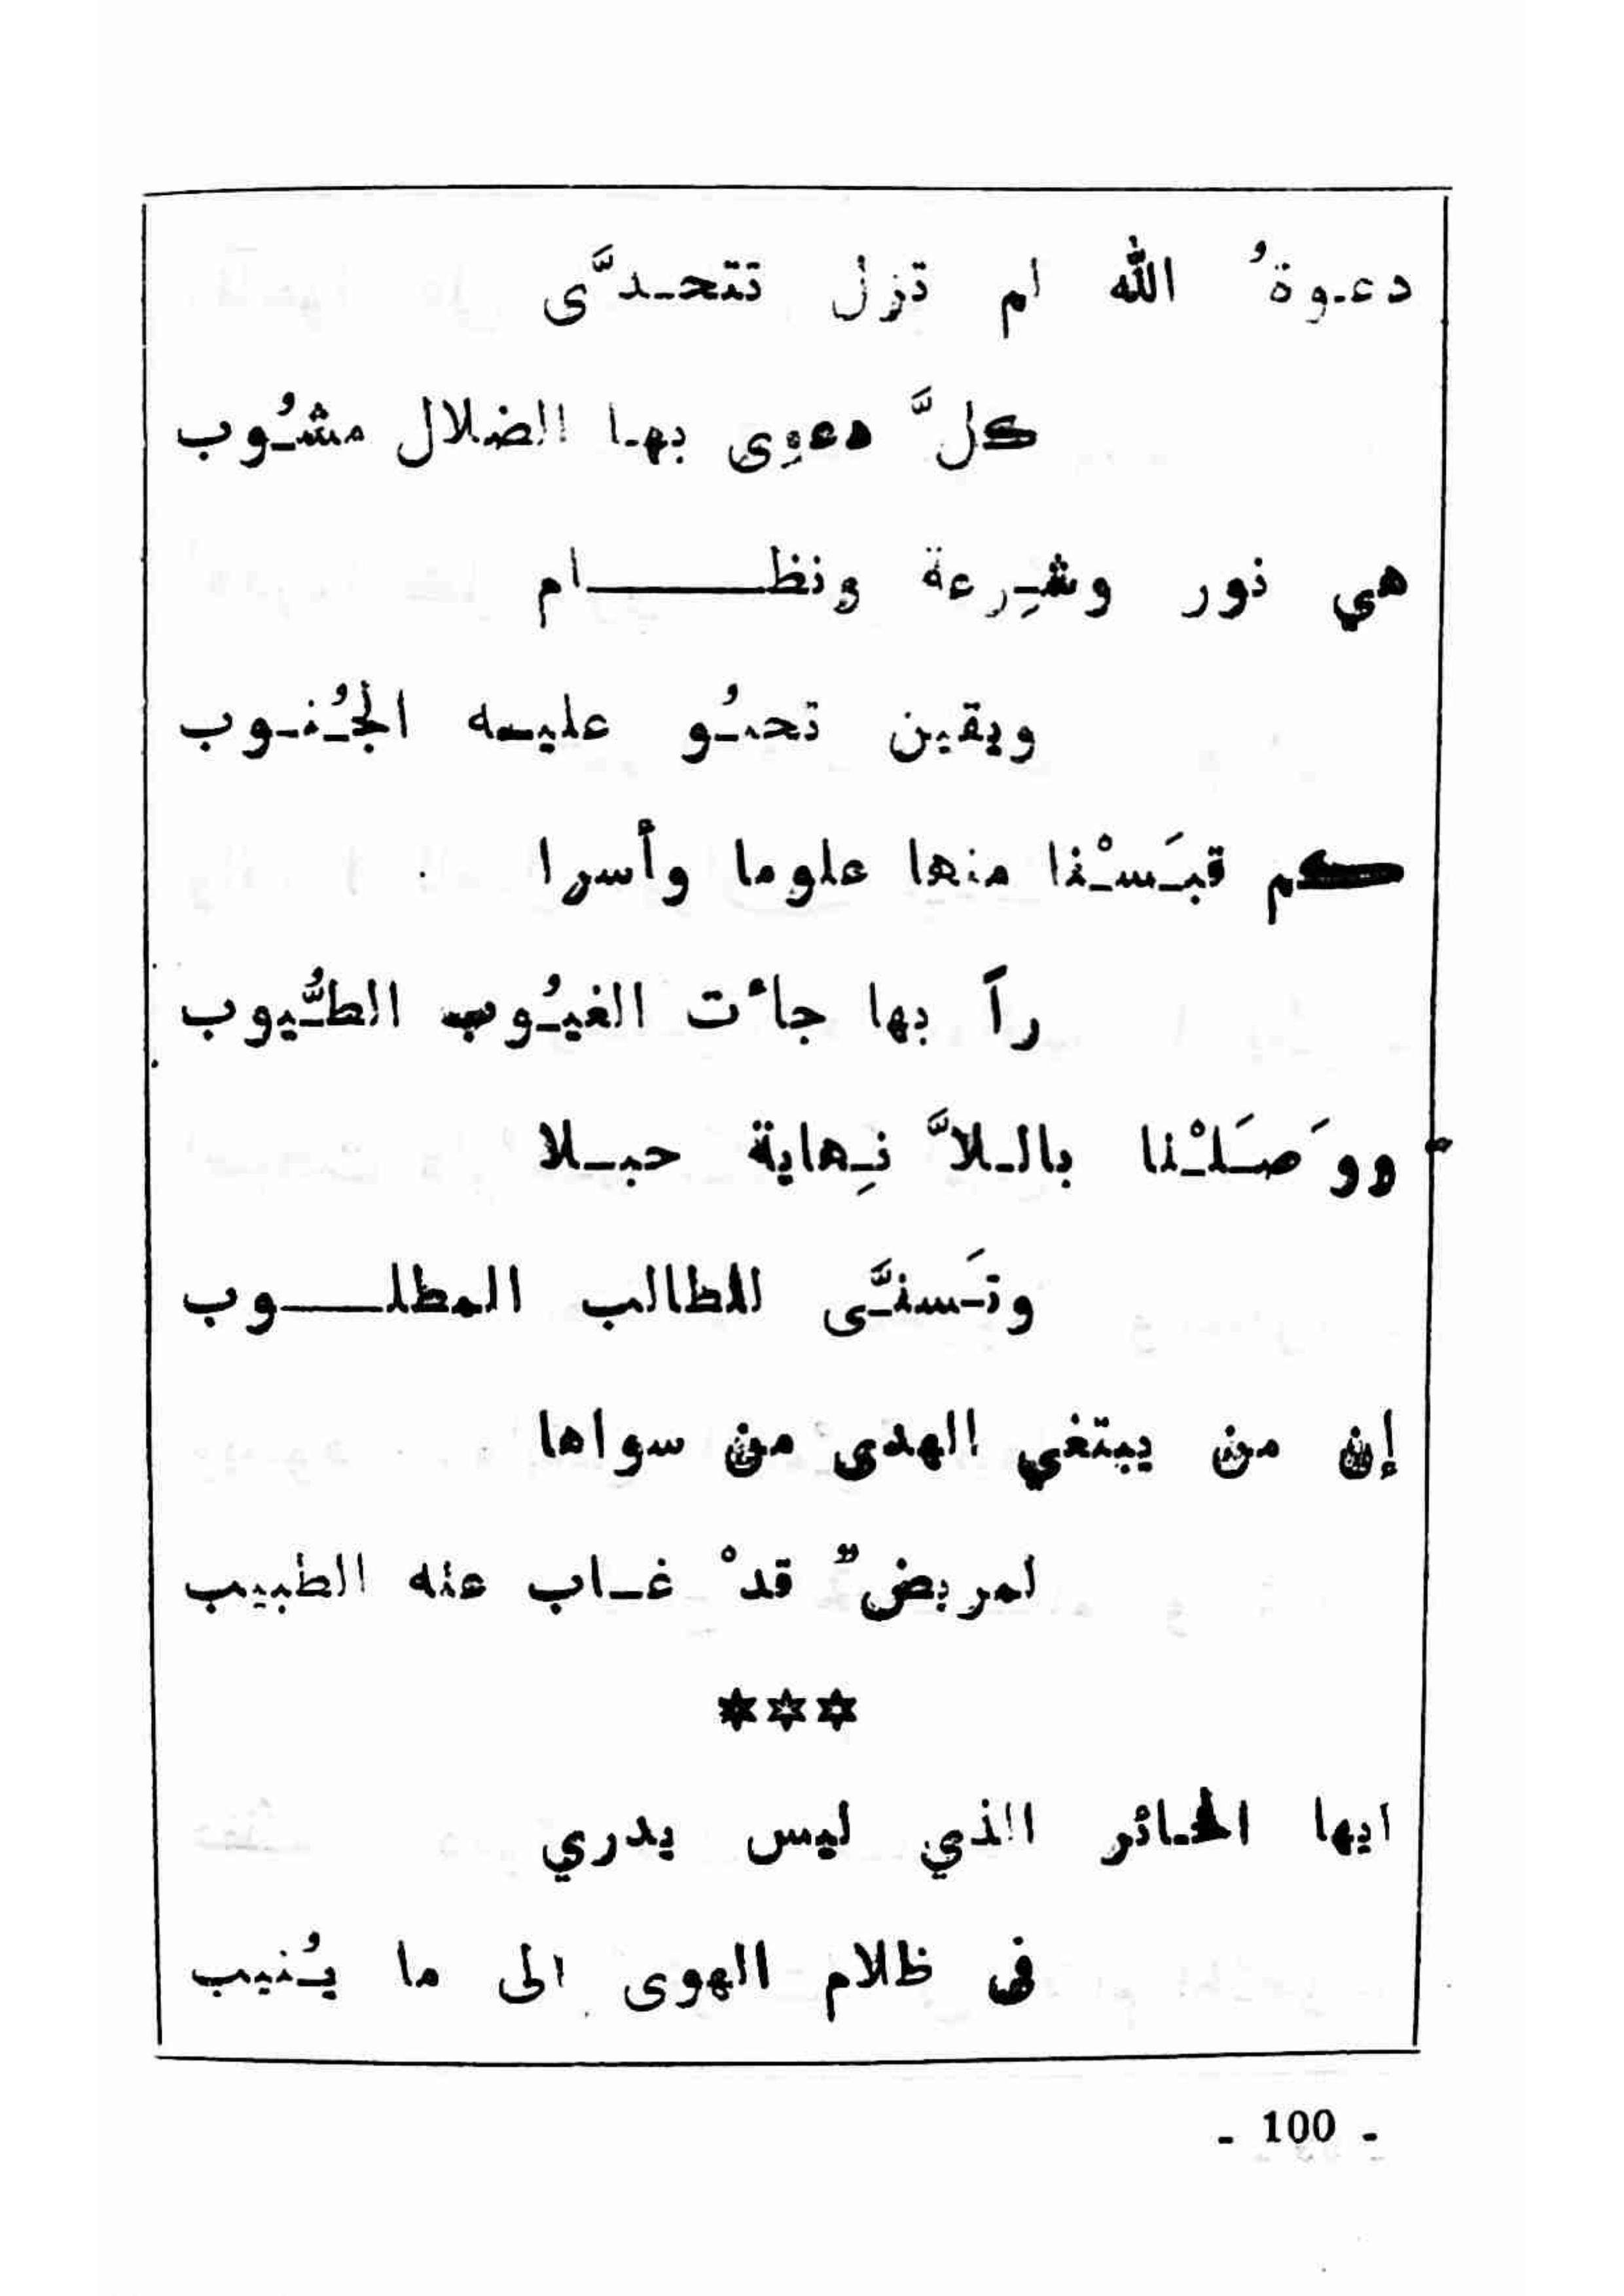 دعوةُ الله لم تزل تتحدَّى
كلَّ دعوى بها الضلال مشُوب
هي نور وشِرعة ونظام
ويقين تحنُو عليه الجُنوب
كم قبَسْنا منها علوما وأسرا
راً بها جاءت الغيُوب الطيُّوب
ووَصَلْنا باللاَّ نِهاية حبلا
وتَسنَّى للطالب المطلوب
إن من يبتغي الهدى من سواها
لمريضٌ قدْ غاب عنه الطبيب
***
ايها الحائر الذي ليس يدري
فى ظلام الهوى الى ما يُنيب
- 100 -